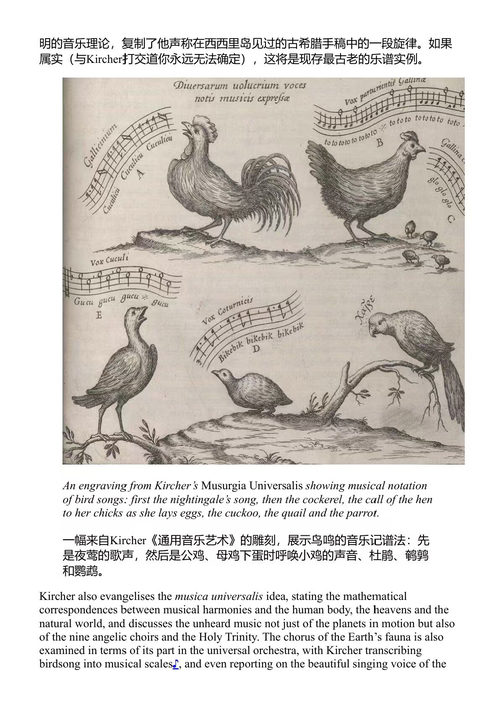 明的音乐理论，复制了他声称在西西里岛见过的古希腊手稿中的一段旋律。如果
属实（与Kircher打交道你永远无法确定），这将是现存最古老的乐谱实例。
Diversarum volucrium voces
notis musicis expressæ
Gallicinium
Cucul​icu Cuculicu Cuculicu
A
Vox parturientis Gallinæ
to to to to to to to to to to to to to
B
Gallina
glo glo glo
C
Vox Cuculi
Gucu gucu gucu gucu
E
Vox Coturnicis
Bikebik bikebik bikebik
D
Χαῖρε
An engraving from Kircher's Musurgia Universalis showing musical notation
of bird songs: first the nightingale's song, then the cockerel, the call of the hen
to her chicks as she lays eggs, the cuckoo, the quail and the parrot.
一幅来自Kircher《通用音乐艺术》的雕刻，展示鸟鸣的音乐记谱法：先
是夜莺的歌声，然后是公鸡、母鸡下蛋时呼唤小鸡的声音、杜鹃、鹌鹑
和鹦鹉。
Kircher also evangelises the musica universalis idea, stating the mathematical
correspondences between musical harmonies and the human body, the heavens and the
natural world, and discusses the unheard music not just of the planets in motion but also
of the nine angelic choirs and the Holy Trinity. The chorus of the Earth's fauna is also
examined in terms of its part in the universal orchestra, with Kircher transcribing
birdsong into musical scales♪, and even reporting on the beautiful singing voice of the